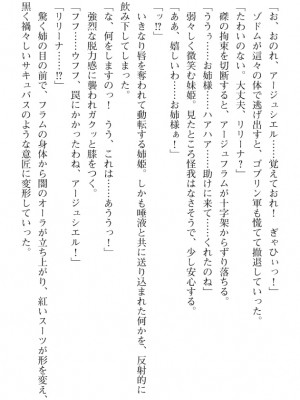 「お、おのれ、アージュシエル……覚えておれ！　ぎゃひぃっ！」
ゾドムが這々の体で逃げ出すと、ゴブリン軍も慌てて撤退していった。
「たわいのない。大丈夫、リリーナ？」
磔の拘束を切断すると、アージュフラムが十字架からずり落ちる。
「ううぅ……お姉様……ハアハア……助けに来て……くれたのね」
弱々しく微笑む妹姫。見たところ怪我はなさそうで、少し安心する。
「ああ、嬉しいわ……お姉様ぁ！」
「ッ!?」
いきなり唇を奪われて動転する姉姫。しかも唾液と共に送り込まれた何かを、反射的に
飲み下してしまった。
「な、何をしますの！　うう、これは……あううっ！」
強烈な脱力感に襲われガクッと膝をつく。
「フフ……ウフフ、罠にかかったわね、アージュシエル！」
「リリーナ……!?」
驚く姉の目の前で、フラムの身体から闇のオーラが立ち上がり、紅いスーツが形を変え、
黒く禍々しいサキュバスのような意匠に変形していく。